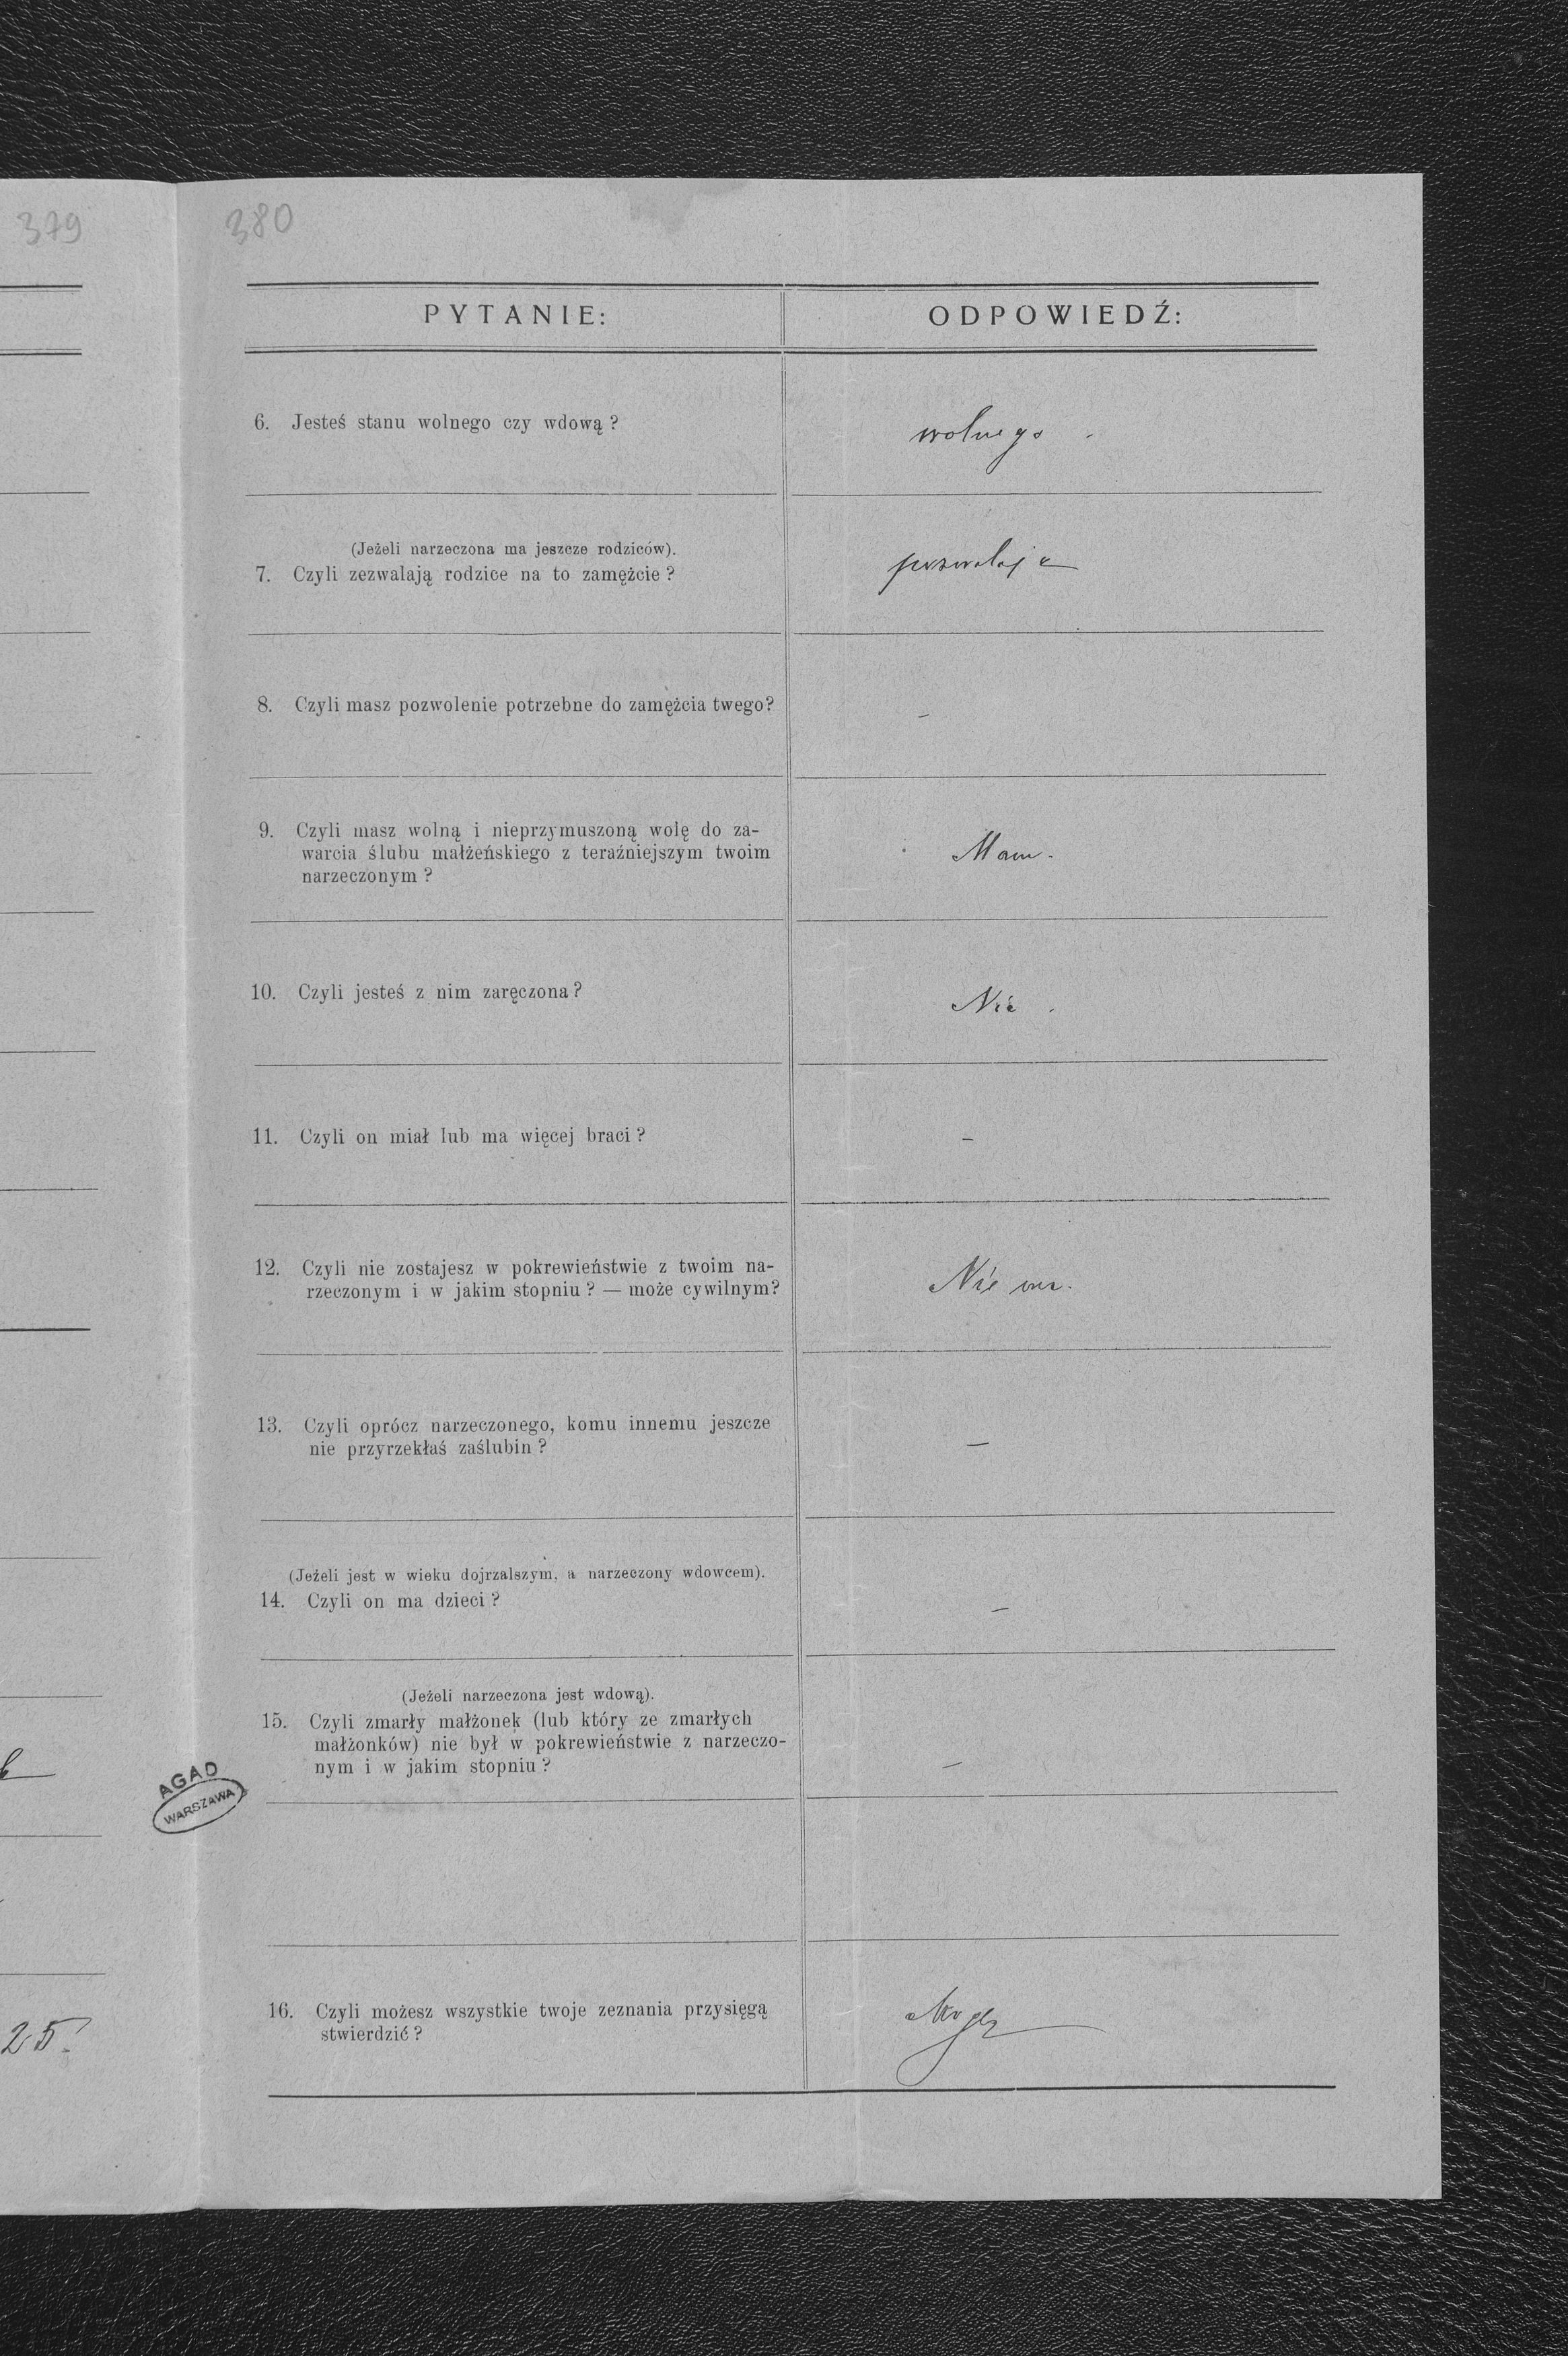 379
380
PYTANIE:
ODPOWIEDŹ:
6. Jesteś stanu wolnego czy wdową?
wolnego.
(Jeżeli narzeczona ma jeszcze rodziców).
7. Czyli zezwalają rodzice na to zamężcie?
pozwalają
8. Czyli masz pozwolenie potrzebne do zamężcia twego?
–
9. Czyli masz wolną i nieprzymuszoną wolę do za-
warcia ślubu małżeńskiego z teraźniejszym twoim
narzeczonym?
Mam.
10. Czyli jesteś z nim zaręczona?
Nie.
11. Czyli on miał lub ma więcej braci?
–
12. Czyli nie zostajesz w pokrewieństwie z twoim na-
rzeczonym i w jakim stopniu? — może cywilnym?
Nie ma.
13. Czyli oprócz narzeczonego, komu innemu jeszcze
nie przyrzekłaś zaślubin?
–
(Jeżeli jest w wieku dojrzalszym, a narzeczony wdowcem).
14. Czyli on ma dzieci?
–
(Jeżeli narzeczona jest wdową).
15. Czyli zmarły małżonek (lub który ze zmarłych
małżonków) nie był w pokrewieństwie z narzeczo-
nym i w jakim stopniu?
–
AGAD
WARSZAWA
16. Czyli możesz wszystkie twoje zeznania przysięgą
stwierdzić?
Mogę
25.